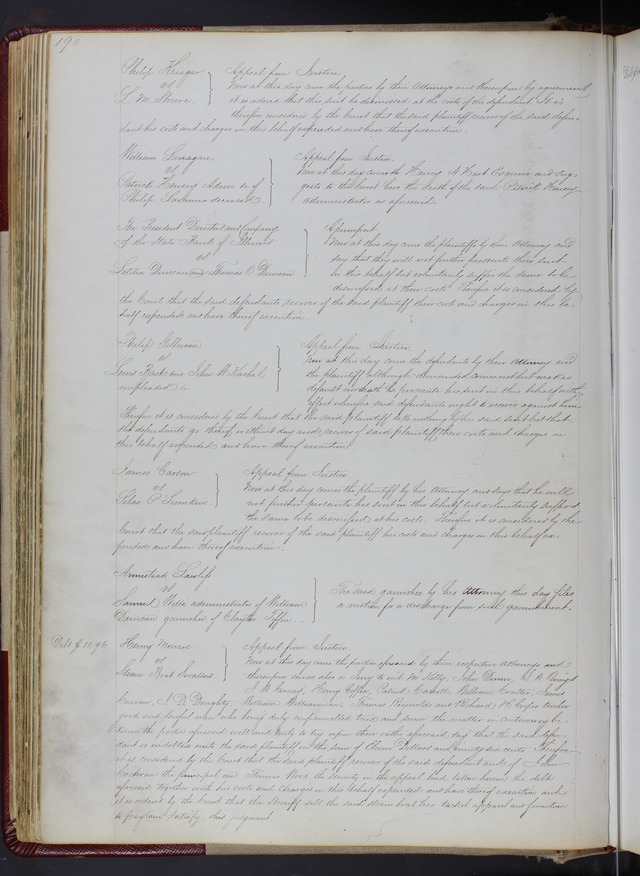 190
Philip Krieger } Appeal from Justice
vs Now at this day came the parties by their Attorneys and thereupon by agreement
L. M. Shreve. it is ordered that this suit be dismissed at the cost of the defendant. It is
therefore considered by the Court that the said plaintiff recover of the said defen-
dant his costs and charges in this behalf expended and have thereof execution.
William } Appeal from Justice
vs Now at this day cometh Henry N Hart Esquire and sug-
Patrick Henry Admr &c of gests to the Court here the death of the said Patrick Henry
Philip deceased administrator as aforesaid.
The President Directors and Company } Assumpsit
of the State Bank of Illinois Now at this day came the plaintiffs by their Attorney and
vs say that they will not further prosecute their suit
Duncan and Thomas O Duncan in this behalf but voluntarily suffer the same to be
dismissed at their cost. Therefore it is considered by
the Court that the said defendants recover of the said plaintiff their costs and charges in this be-
half expended and have thereof execution.
Philip } Appeal from Justice
vs Now at this day came the defendants by their Attorney and
Lewis and John W the plaintiff although demanded comes not but makes
impleaded &c default nor doth he prosecute his suit in this behalf with
effect wherefore said defendants ought to recover against him
Therefore it is considered by the Court that the said plaintiff take nothing by his said suit but that
the defendants go thereof without day and recover of said plaintiff their costs and charges in
this behalf expended and have thereof execution
James Carson } Appeal from Justice
vs Now at this day comes the plaintiff by his Attorney and says that he will
Silas P not further prosecute his suit in this behalf but voluntarily suffers
the same to be dismissed at his costs. Therefore it is considered by the
Court that the said plaintiff recover of the said plaintiff his costs and charges in this behalf ex-
pended and have thereof execution.
Armistead } The said garnishee by his Attorney this day files
vs a motion for a discharge from said garnishment.
Samuel Wells administrator of William
Duncan garnishee of Clayton Tiffin.
Debt $11.96 Henry Monroe } Appeal from Justice
vs Now at this day came the parties aforesaid by their respective Attorneys and
Steam Boat Swallow. thereupon comes also a Jury to wit M Kelly, John Dunn,
Henry Patrick William James
Curran, N. D. Doughty William Williamson, Thomas Reynolds and Richard H twelve
good and lawful men who being duly empannelled tried and sworn the matter in controversy be-
tween the parties aforesaid well and truly to try upon their oaths aforesaid say that the said defen-
dant is indebted unto the said plaintiff in the sum of Eleven Dollars and ninety six cents. Therefore
it is considered by the Court that the said plaintiff recover of the said defendant and of John
Cochran the principal and Thomas Wood the security in the appeal bond taken herein the debt
aforesaid together with his costs and charges in this behalf expended and have thereof execution and
it is ordered by the Court that the Sheriff sell the said steam boat her tackel apparel and furniture
to pay and satisfy this judgment.